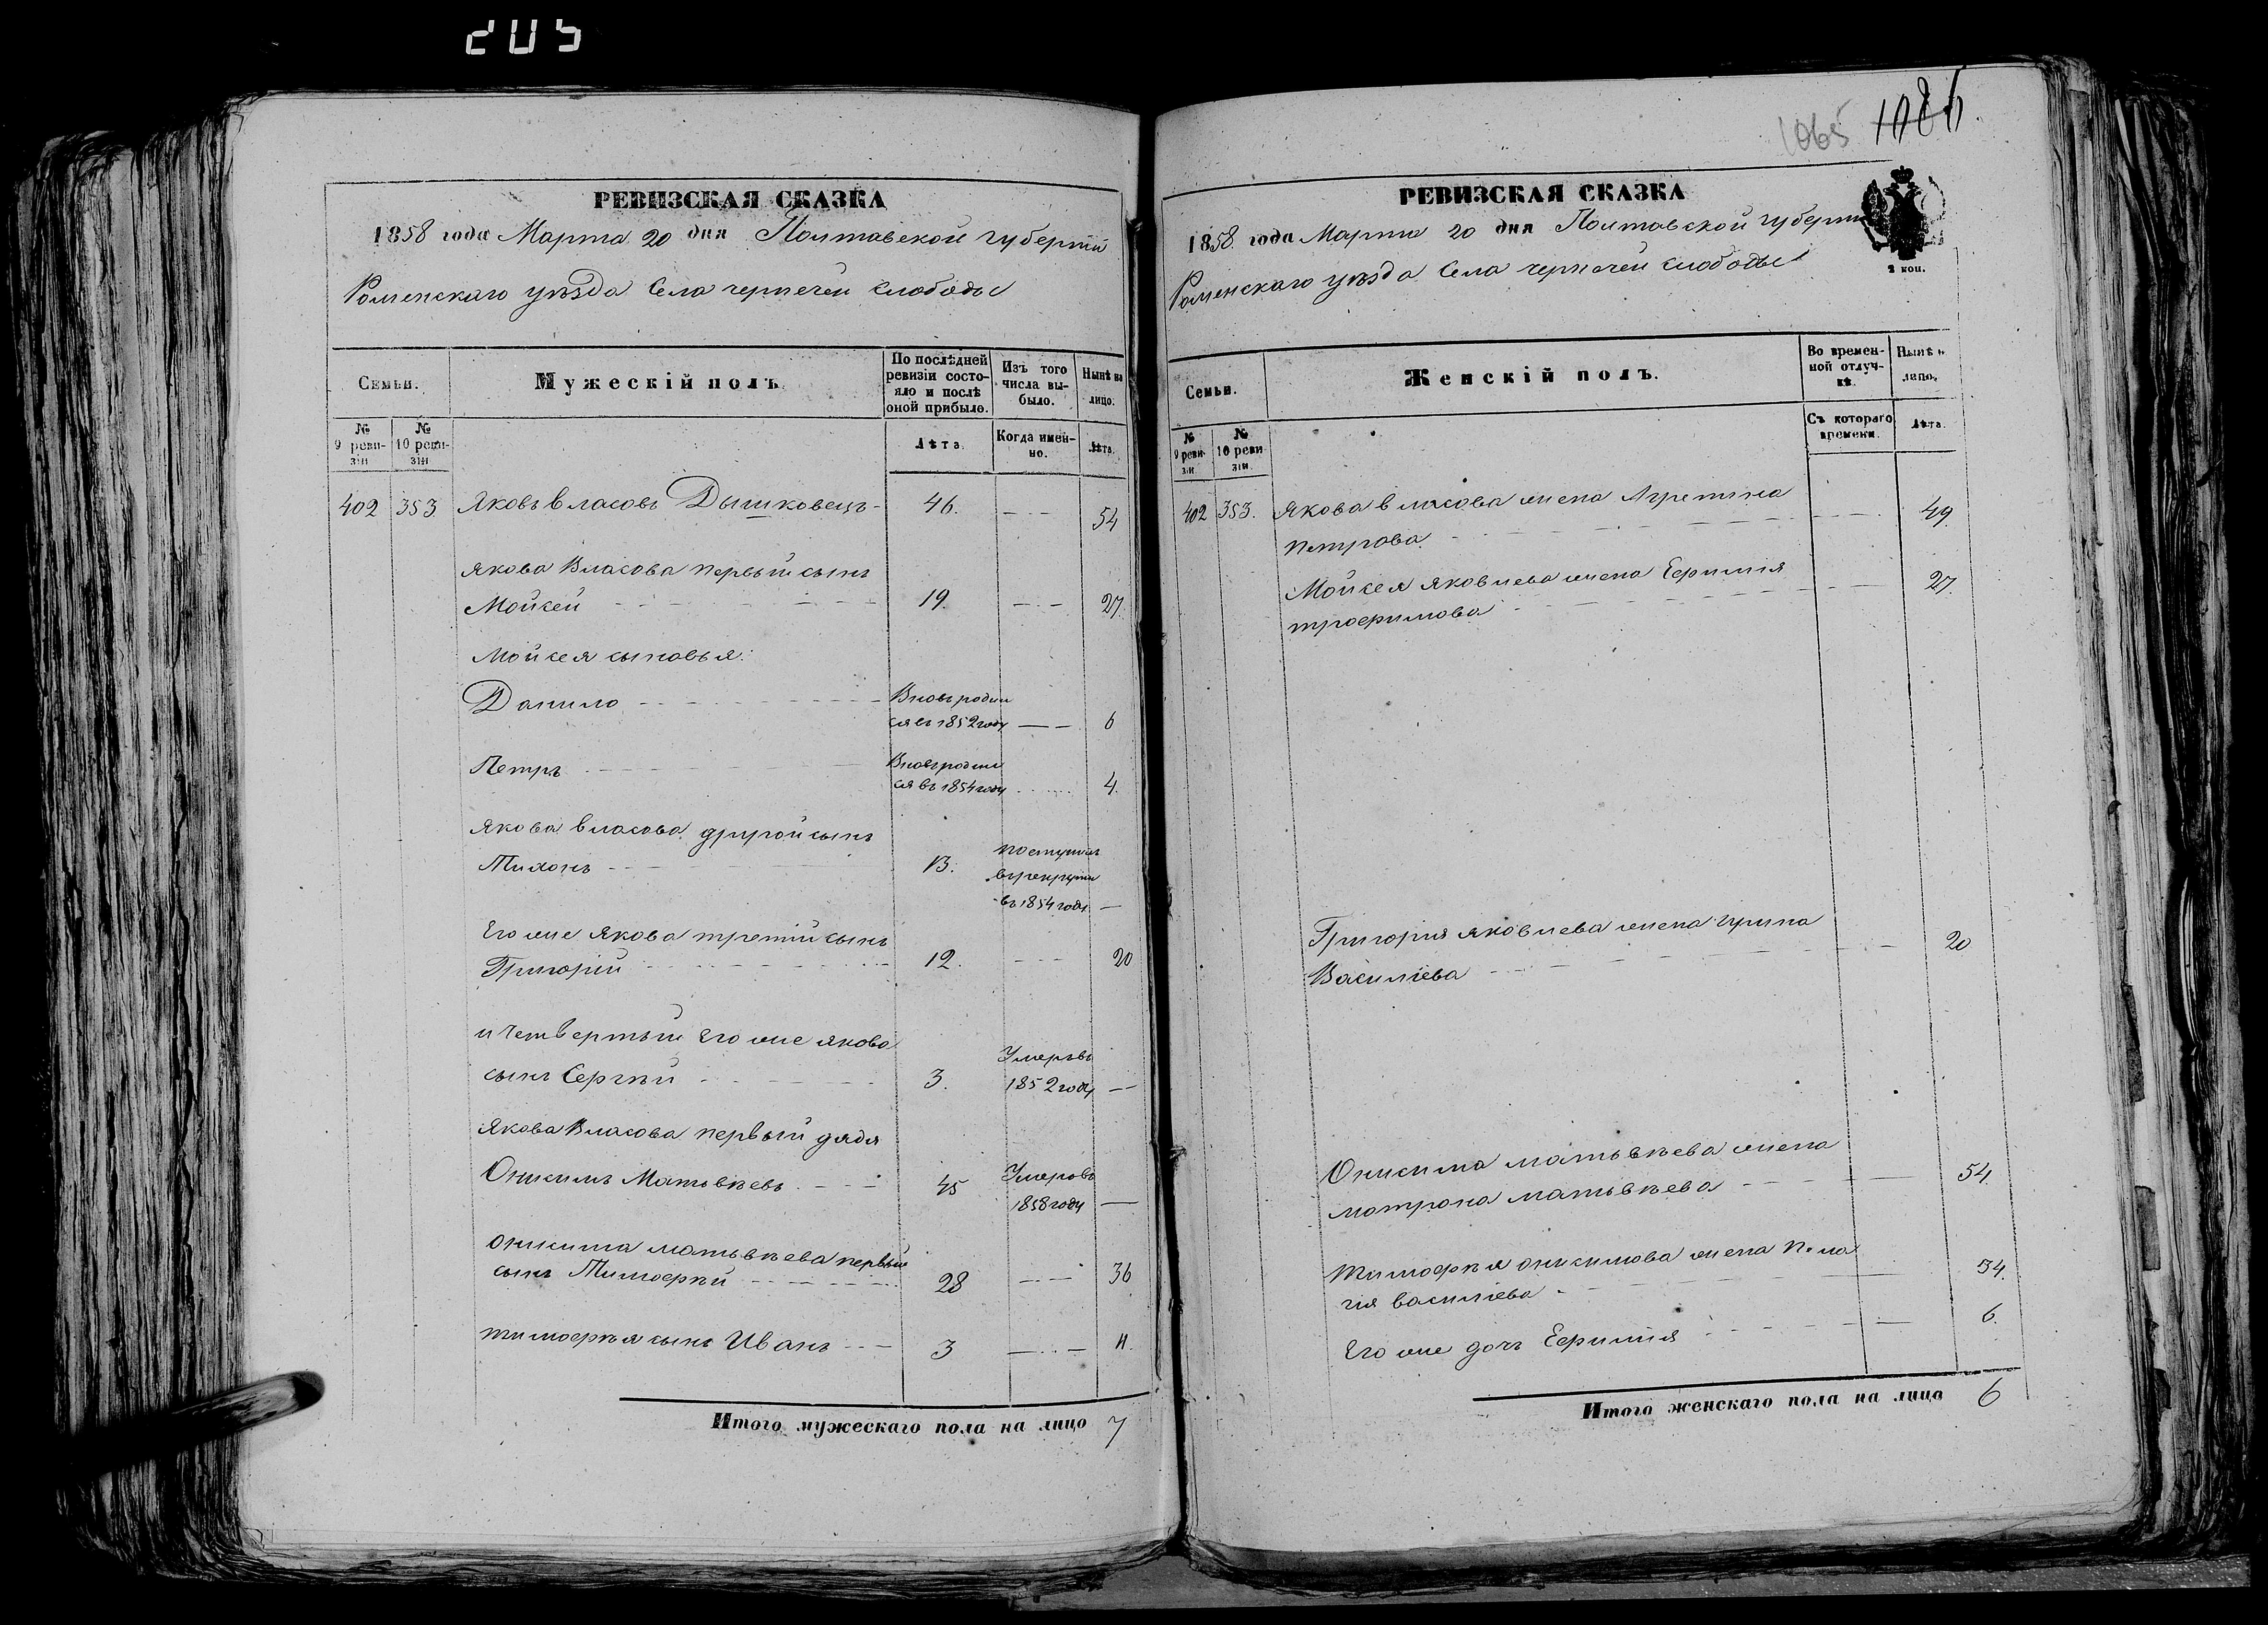 205
РЕВИЗСКАЯ СКАЗКА
1858 года Марта 20 дня Полтавской губерніи
Роменскаго уѣзда Села чернечей слободы
Семьи.
Мужескій полъ.
По послѣдней ревизіи состояло и послѣ оной прибыло.
Изъ того числа выбыло.
Нынѣ на лицо.
№ 9 ревизіи
№ 10 ревизіи
Лѣта.
Когда именно.
Лѣта.
402 353 Яковъ власовъ Дышковецъ - 46. 54
Якова Власова первый сынъ
Мойсей 19. 27.
Мойсея сыновья:
Данило Вновь родился въ 1852 году 6
Петръ Вновь родился въ 1854 году 4.
Якова власова другой сынъ
Тихонъ 13. поступилъ в рекруты въ 1854 году —
Его же Якова третій сынъ
Григорій 12. 20
и четвертый Его же якова
сынъ Сергѣй 3. Умеръ въ 1852 году —
Якова Власова первый дядя
Онисимъ Матвѣевъ 45 Умеръ въ 1858 году —
Онисима матвѣева первый
сынъ Тимофѣй 28 36
тимофѣя сынъ Иванъ 3 11.
Итого мужескаго пола на лицо 7
1065 1086
РЕВИЗСКАЯ СКАЗКА
2 коп.
1858 года Марта 20 дня Полтавской губерніи
Роменскаго уѣзда Села чернечей слободы
Семьи.
Женскій полъ.
Во временной отлучкѣ.
Нынѣ на лицо.
№ 9 ревизіи
№ 10 ревизіи
Съ котораго времени.
Лѣта.
402 353. Якова власова жена Агрепина 49.
петрова
Мойсея яковлева жена Ефимия 27.
трофимова
Григорія яковлева жена ирина 20
Василіева
Онисима матвѣева жена 54.
мотрона матвѣева
тимофѣя онисимова жена пела 34.
гія василіева
Его же дочь Ефимия 6.
Итого женскаго пола на лицо 6